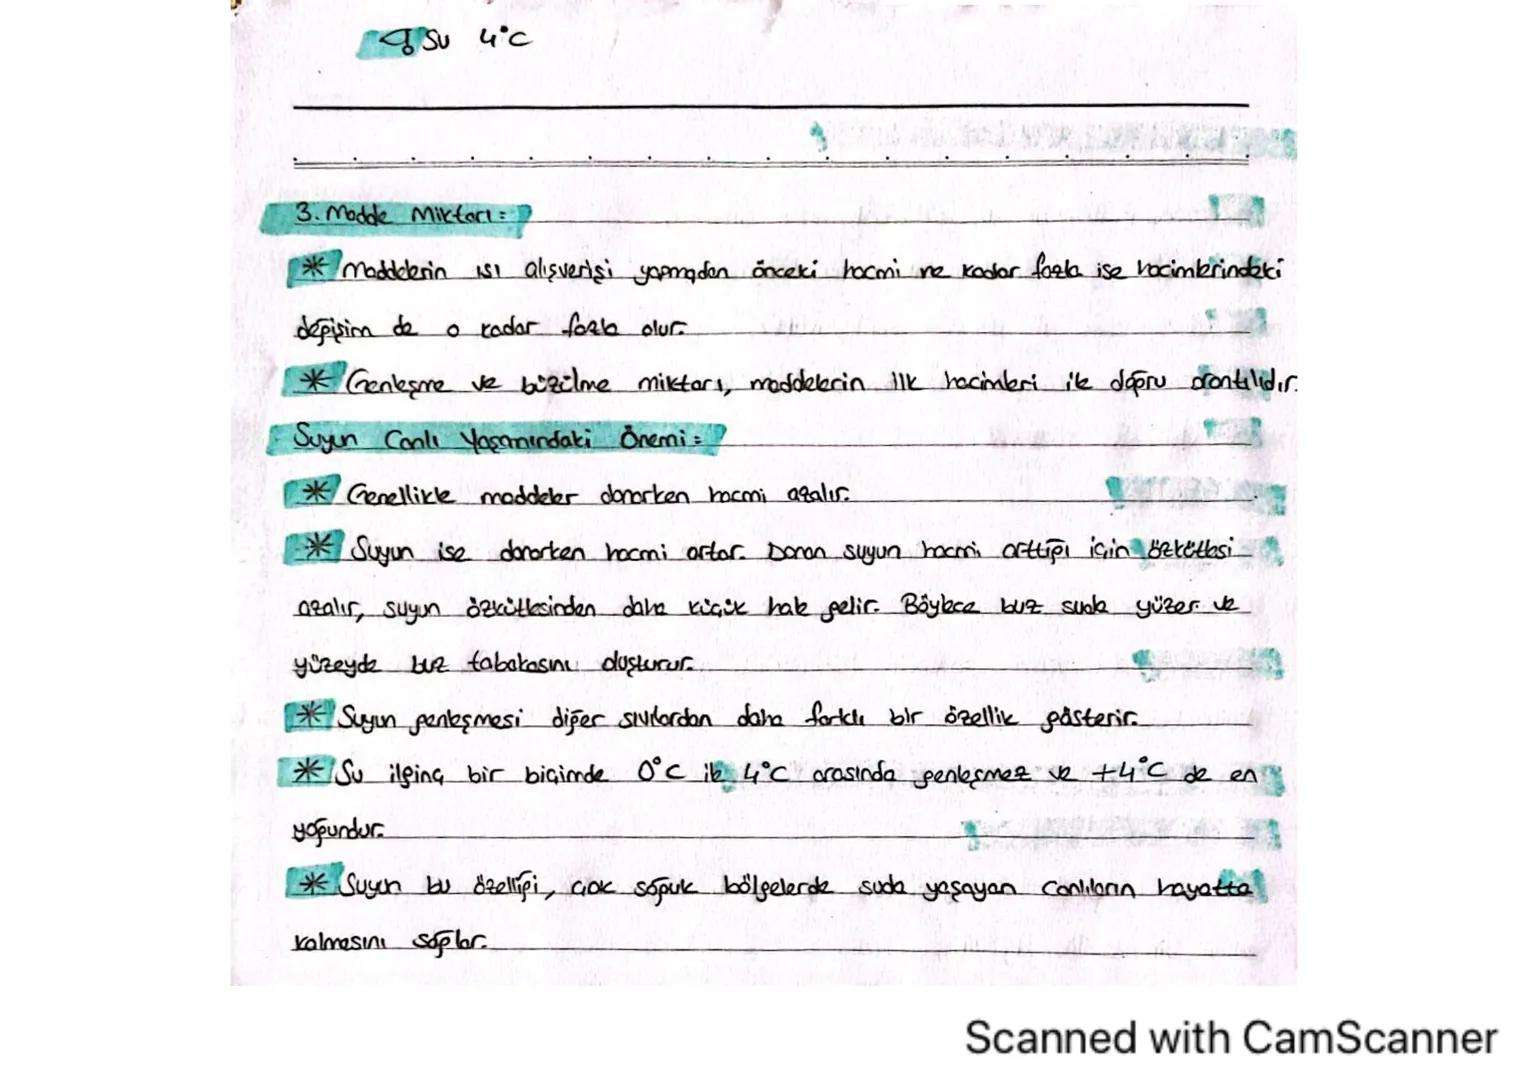 Su 4°C
3. Madde Miktarı:
* Maddelerin ısı alışverişi yapmadan önceki hacmi ne kadar fazla ise hacimlerindeki
değişim de o kadar fazla olur.
* Genleşme ve büzülme miktarı, maddelerin ilk hacimleri ile doğru orantılıdır.
Suyun Canlı Yaşamındaki Önemi:
* Genellikle maddeler donarken hacmi azalır.
* Suyun ise donarken hacmi artar. Donan suyun hacmi arttığı için özkütlesi
azalır, suyun özkütlesinden daha küçük hale gelir. Böylece buz suda yüzer ve
yüzeyde buz tabakasını oluşturur.
* Suyun genleşmesi diğer sıvılardan daha farklı bir özellik gösterir.
* Su ilginç bir biçimde 0°C ile 4°C arasında genleşmez ve +4°C de en
yoğundur.
* Suyun bu özelliği, çok soğuk bölgelerde suda yaşayan canlıların hayatta
kalmasını sağlar.
Scanned with CamScanner